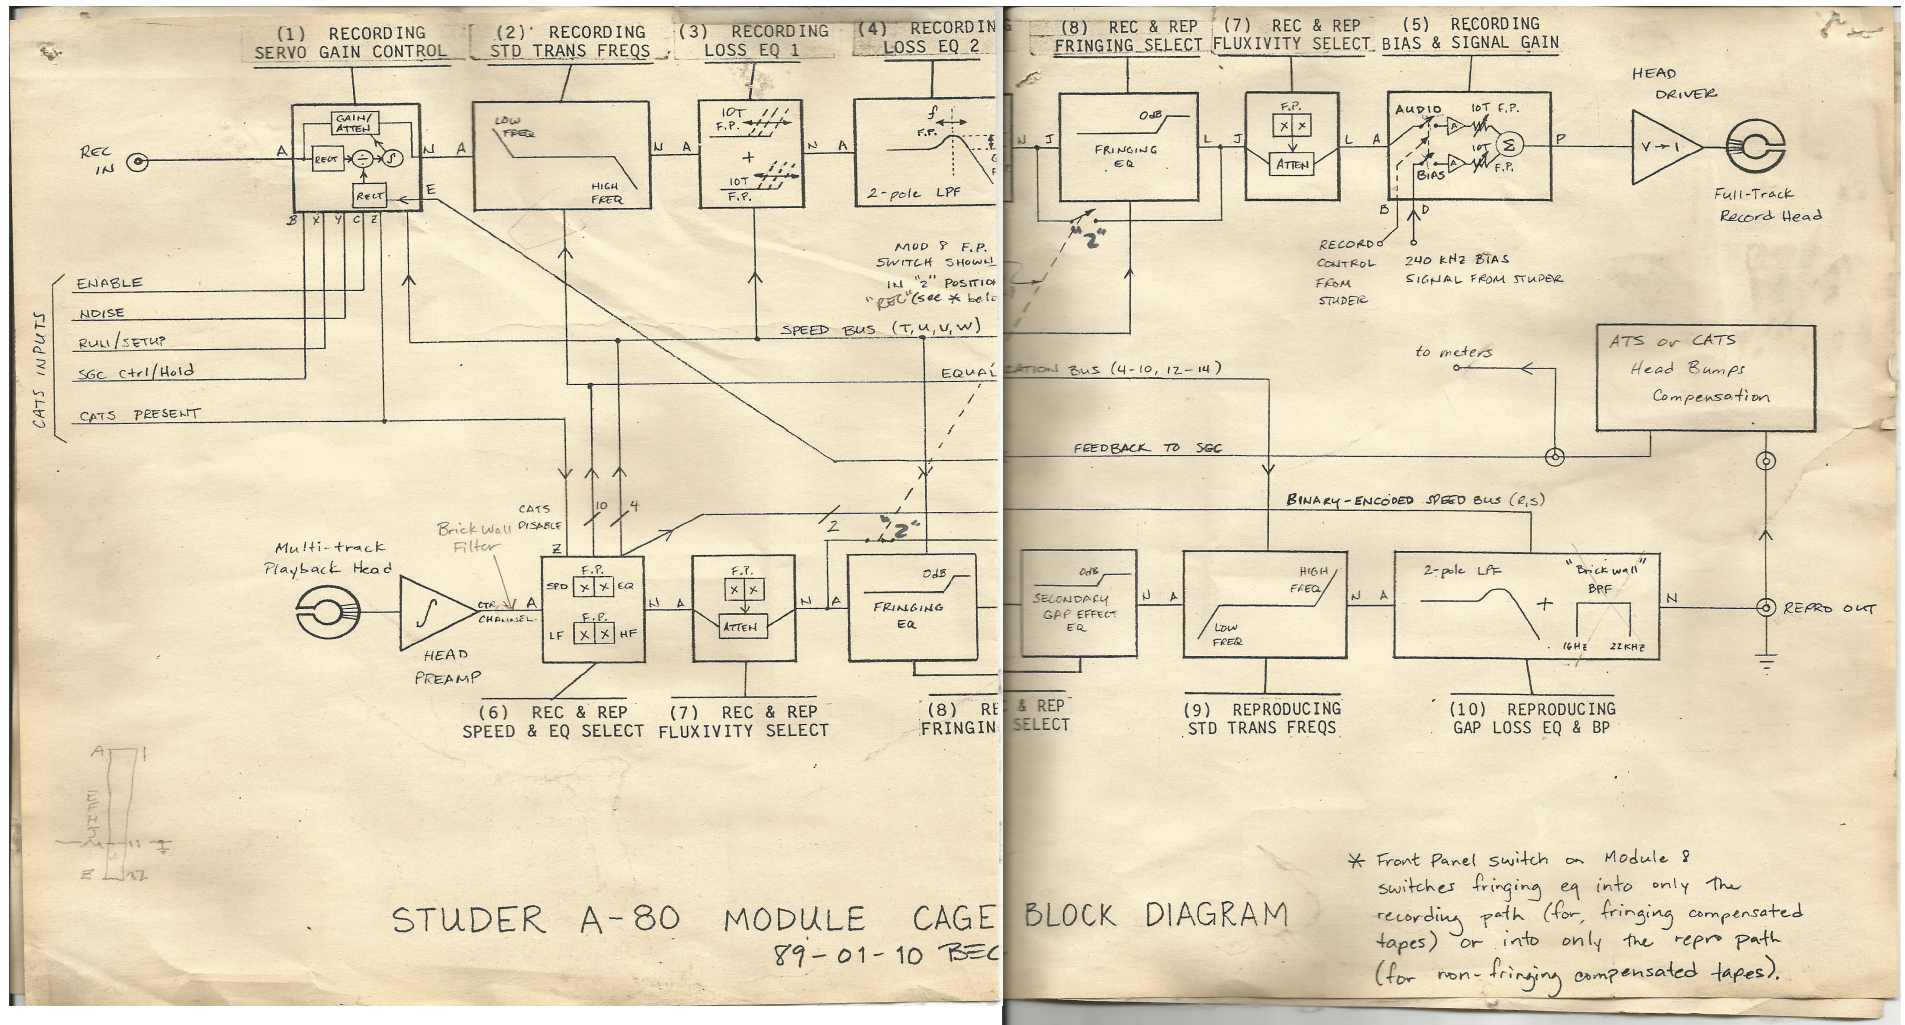 (1) RECORDING
SERVO GAIN CONTROL
(2) RECORDING
STD TRANS FREQS
(3) RECORDING
LOSS EQ 1
(4) RECORDIN
LOSS EQ 2
(8) REC & REP
FRINGING SELECT
(7) REC & REP
FLUXIVITY SELECT
(5) RECORDING
BIAS & SIGNAL GAIN
HEAD
DRIVER
REC
IN
A
GAIN/
ATTEN
RECT
÷
∫
RECT
N
E
B X Y C Z
A
LOW
FREQ
HIGH
FREQ
N
A
10T
F.P.
+
10T
F.P.
N
A
f
F.P.
2-pole LPF
N
J
0dB
FRINGING
EQ
L
J
F.P.
X X
ATTEN
L
A
AUDIO
10T F.P.
A
Σ
10T
F.P.
A
BIAS
P
B
D
V→I
Full-Track
Record Head
"2"
RECORD
CONTROL
FROM
STUDER
240 KHZ BIAS
SIGNAL FROM STUDER
MOD 8 F.P.
SWITCH SHOWN
IN "2" POSITION
"REC" (see * belo
CATS INPUTS
ENABLE
NOISE
RUN/SETUP
SGC Ctrl/Hold
CATS PRESENT
SPEED BUS (T,U,V,W)
EQUALIZATION BUS (4-10, 12-14)
to meters
ATS or CATS
Head Bumps
Compensation
FEEDBACK TO SGC
BINARY-ENCODED SPEED BUS (R,S)
CATS
DISABLE
10
4
2
"2"
Brick Wall
Filter
Multi-track
Playback Head
∫
HEAD
PREAMP
CTR
CHANNEL
A
Z
F.P.
SPD X X EQ
F.P.
LF X X HF
N
A
F.P.
X X
ATTEN
N
A
0dB
FRINGING
EQ
0dB
SECONDARY
GAP EFFECT
EQ
N
A
HIGH
FREQ
LOW
FREQ
N
A
2-pole LPF
+
"Brickwall"
BPF
16HZ 22KHZ
N
REPRO OUT
(6) REC & REP
SPEED & EQ SELECT
(7) REC & REP
FLUXIVITY SELECT
(8) RE
FRINGIN
& REP
SELECT
(9) REPRODUCING
STD TRANS FREQS
(10) REPRODUCING
GAP LOSS EQ & BP
A 1
Z 22
STUDER A-80 MODULE CAGE BLOCK DIAGRAM
89-01-10 BEC
* Front Panel switch on Module 8
switches fringing eq into only the
recording path (for, fringing compensated
tapes) or into only the repro path
(for non-fringing compensated tapes).